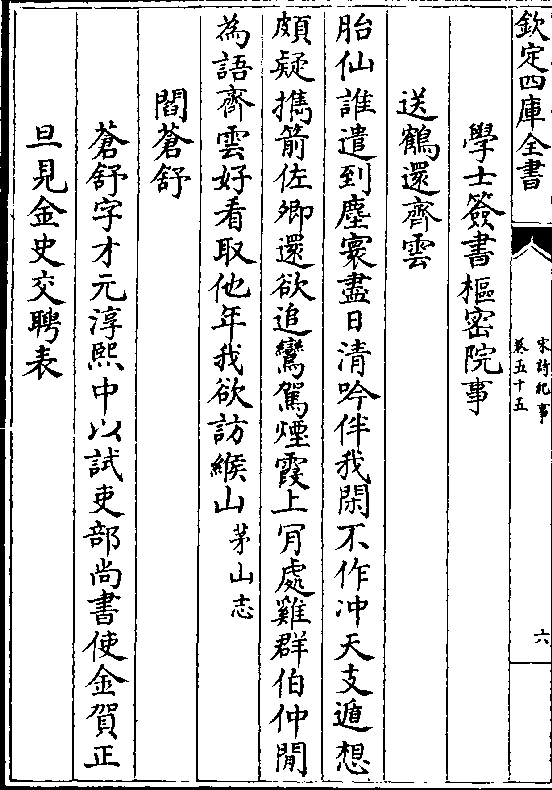 欽定四庫全書
宋詩紀事
卷五十五
六
學士簽書樞密院事
送鶴還齊雲
胎仙誰遣到塵寰盡日清吟伴我閑不作冲天支遁想
頗疑攜箭佐卿還欲追鸞駕煙霞上肎處雞群伯仲閒
為語齊雲好看取他年我欲訪緱山茅山志
閻蒼舒
蒼舒字才元淳熙中以試吏部尚書使金賀正
旦見金史交聘表